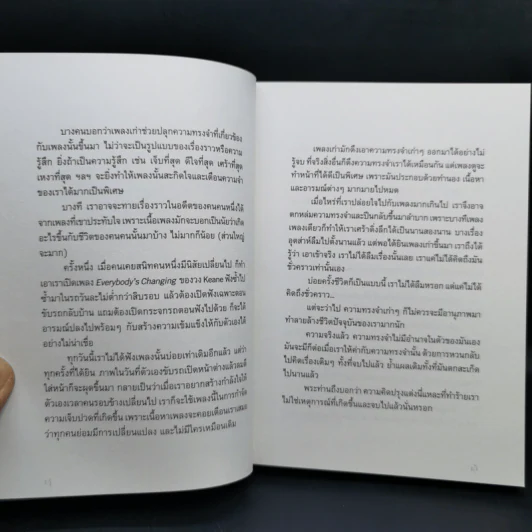 บางคนบอกว่าเพลงเก่าช่วยปลุกความทรงจำที่เกี่ยวข้อง
กับเพลงนั้นขึ้นมา ไม่ว่าจะเป็นรูปแบบของเรื่องราวหรือความ
รู้สึก ยิ่งถ้าเป็นความรู้สึก เช่น เจ็บที่สุด ดีใจที่สุด เศร้าที่สุด
เหงาที่สุด ฯลฯ จะยิ่งทำให้เพลงนั้นสะกิดใจและเตือนความจำ
ของเราได้มากเป็นพิเศษ
บางที เราอาจจะทายเรื่องราวในอดีตของคนคนหนึ่งได้
จากเพลงที่เขาประทับใจ เพราะเนื้อเพลงมักจะบอกเป็นนัยว่าเกิด
อะไรขึ้นกับชีวิตของคนคนนั้นมาบ้าง ไม่มากก็น้อย (ส่วนใหญ่
จะมาก)
ครั้งหนึ่ง เมื่อคนเคยสนิทคนหนึ่งมีนิสัยเปลี่ยนไป ก็ทำ
เอาเราเปิดเพลง Everybody's Changing ของวง Keane ฟังซ้ำไป
ซ้ำมาในรถวันละไม่ต่ำกว่าสิบรอบ แล้วต้องเปิดฟังเฉพาะตอน
ขับรถกลับบ้าน แถมต้องเปิดกระจกรถตอนฟังไปด้วย ก็จะได้
อารมณ์ปลงไปพร้อมๆ กับสร้างความเข้มแข็งให้กับตัวเองได้
อย่างไม่น่าเชื่อ
ทุกวันนี้เราไม่ได้ฟังเพลงนั้นบ่อยเท่าเดิมอีกแล้ว แต่ว่า
ทุกครั้งที่ได้ยิน ภาพในวันที่ตัวเองขับรถเปิดหน้าต่างแล้วลมตี
ใส่หน้าก็จะผุดขึ้นมา กลายเป็นว่าเมื่อเราอยากสร้างกำลังใจให้
ตัวเองเวลาคนรอบข้างเปลี่ยนไป เราก็จะใช้เพลงนี้ในการกำจัด
ความเจ็บปวดที่เกิดขึ้น เพราะเนื้อหาเพลงจะคอยเตือนเราเสมอ
ว่าทุกคนย่อมมีการเปลี่ยนแปลง และไม่มีใครเหมือนเดิม
เพลงเก่ามักดึงเอาความทรงจำเก่าๆ ออกมาได้อย่างไม่
รู้จบ ที่จริงสิ่งอื่นก็ดึงความทรงจำเราได้เหมือนกัน แต่เพลงดูจะ
ทำหน้าที่ได้ดีเป็นพิเศษ เพราะมันประกอบด้วยทำนอง เนื้อหา
และอารมณ์ต่างๆ มากมายไปหมด
เมื่อไหร่ที่เราปล่อยใจไปกับเพลงมากเกินไป เราจึงอาจ
ตกหล่มความทรงจำและปีนกลับขึ้นมาลำบาก เพราะบางทีเพลง
เพลงเดียวก็ทำให้เราเศร้าดิ่งลึกได้เป็นนานสองนาน บางเรื่อง
อุตส่าห์ลืมไปตั้งนานแล้ว แต่พอได้ยินเพลงเก่าขึ้นมา เราถึงได้
รู้ว่า เอาเข้าจริง เราไม่ได้ลืมเรื่องนั้นเลย เราแค่ไม่ได้คิดถึงมัน
ชั่วคราวเท่านั้นเอง
บ่อยครั้งชีวิตก็เป็นแบบนี้ เราไม่ได้ลืมหรอก แต่แค่ไม่ได้
คิดถึงชั่วคราว..
แต่จะว่าไป ความทรงจำเก่าๆ ก็ไม่ควรจะมีอานุภาพมา
ทำลายล้างชีวิตปัจจุบันของเรามากนัก
ความจริงแล้ว ความทรงจำไม่มีอำนาจในตัวของมันเอง
มันจะมีก็ต่อเมื่อเราให้ค่ากับความทรงจำนั้น ด้วยการหวนกลับ
ไปคิดเรื่องเดิมๆ ทั้งที่จบไปแล้ว ย้ำแผลเดิมทั้งที่มันตกสะเก็ด
ไปนานแล้ว
พระท่านถึงบอกว่า ความคิดปรุงแต่งนี่แหละที่ทำร้ายเรา
ไม่ใช่เหตุการณ์ที่เกิดขึ้นและจบไปแล้วนั่นหรอก